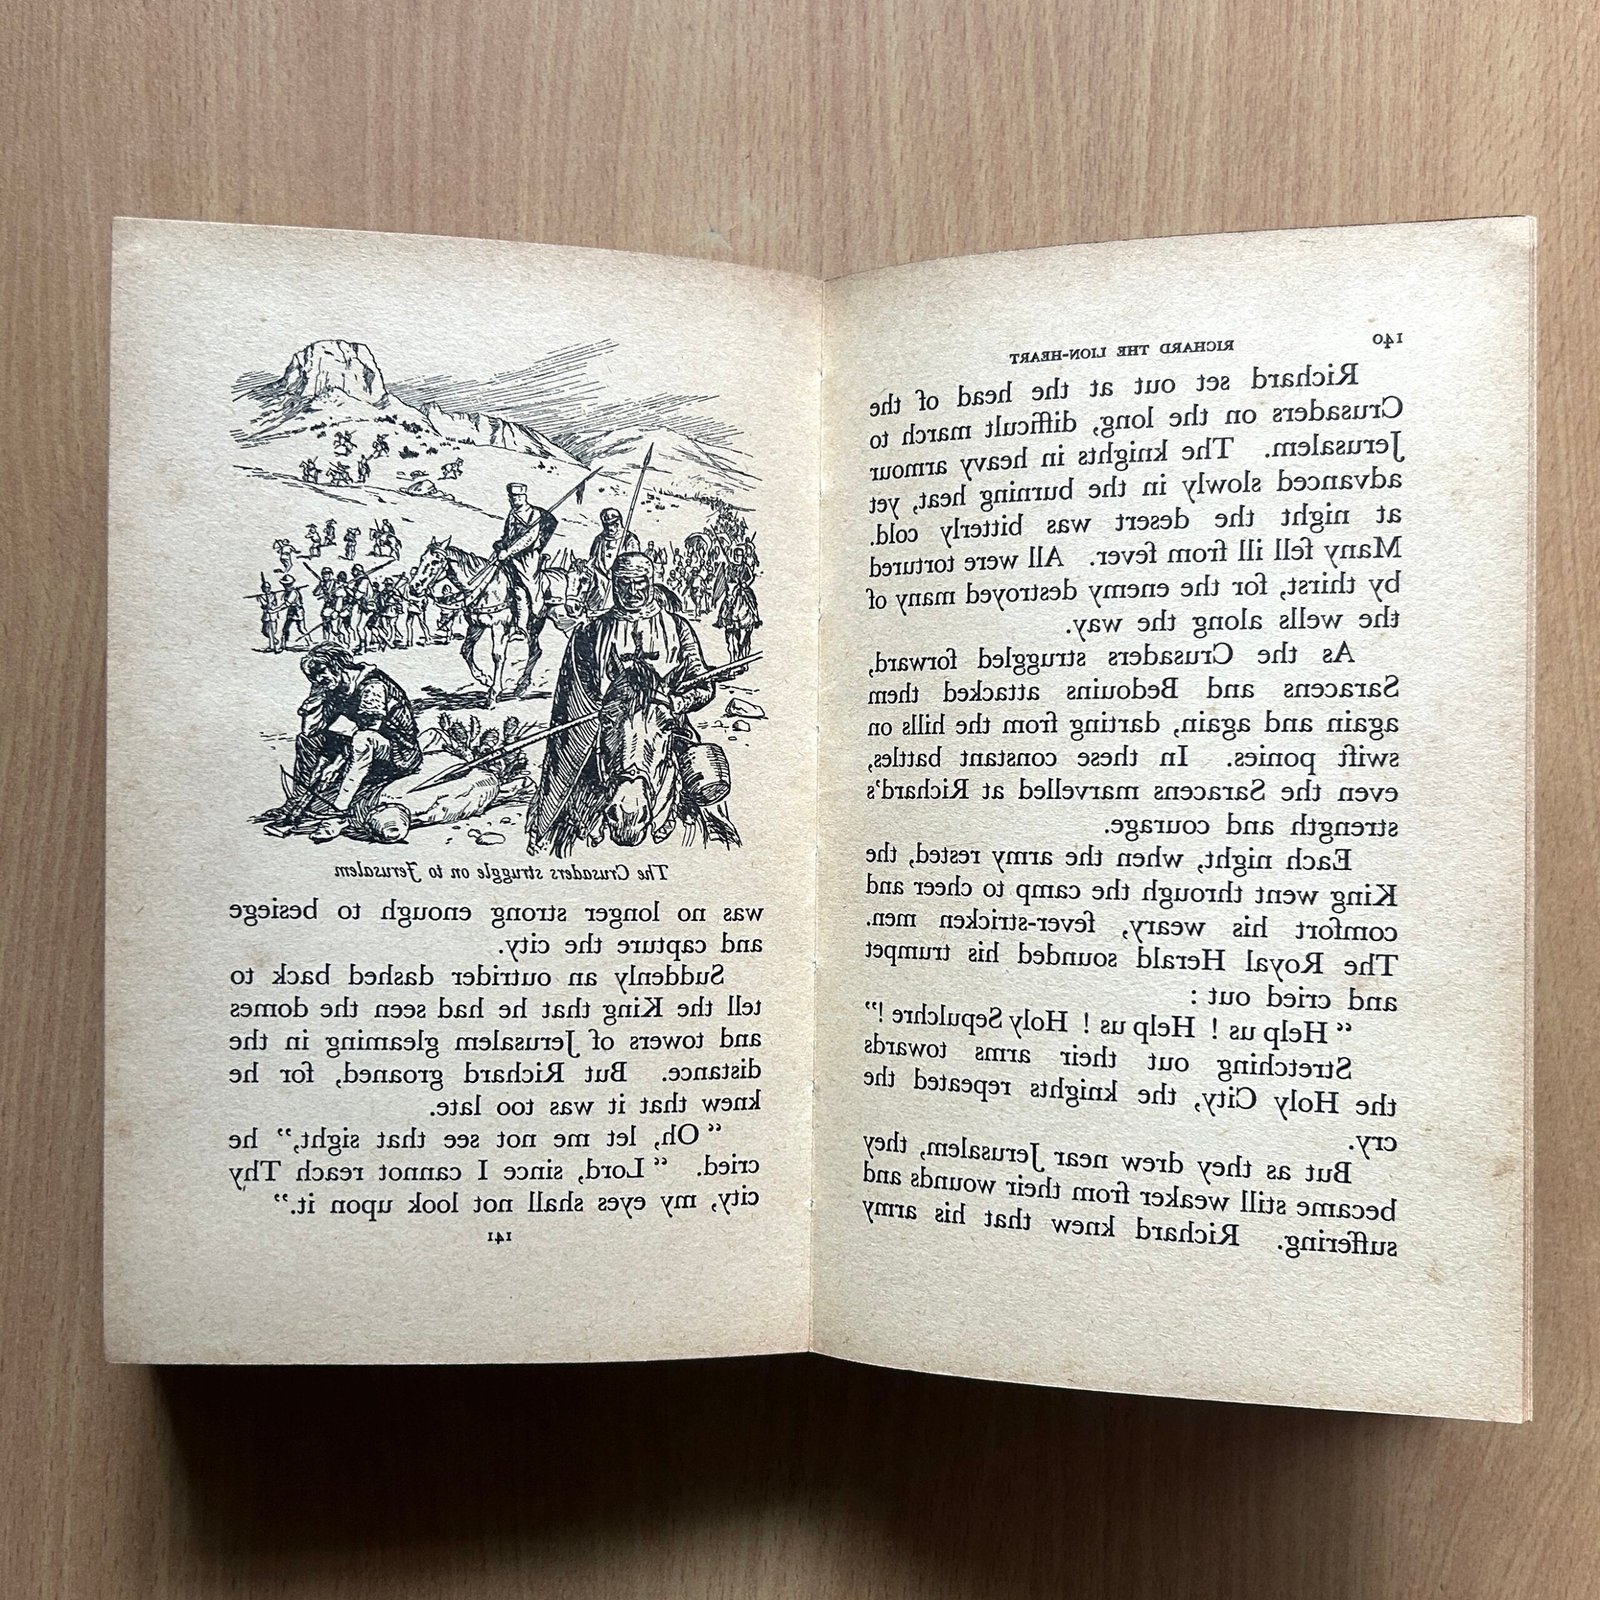 140
RICHARD THE LION-HEART
Richard set out at the head of the
Crusaders on the long, difficult march to
Jerusalem. The knights in heavy armour
advanced slowly in the burning heat, yet
at night the desert was bitterly cold.
Many fell ill from fever. All were tortured
by thirst, for the enemy destroyed many of
the wells along the way.
As the Crusaders struggled forward,
Saracens and Bedouins attacked them
again and again, darting from the hills on
swift ponies. In these constant battles,
even the Saracens marvelled at Richard's
strength and courage.
Each night, when the army rested, the
King went through the camp to cheer and
comfort his weary, fever-stricken men.
The Royal Herald sounded his trumpet
and cried out :
“ Help us ! Help us ! Holy Sepulchre !”
Stretching out their arms towards
the Holy City, the knights repeated the
cry.
But as they drew near Jerusalem, they
became still weaker from their wounds and
suffering. Richard knew that his army
The Crusaders struggle on to Jerusalem
was no longer strong enough to besiege
and capture the city.
Suddenly an outrider dashed back to
tell the King that he had seen the domes
and towers of Jerusalem gleaming in the
distance. But Richard groaned, for he
knew that it was too late.
“ Oh, let me not see that sight,” he
cried. “ Lord, since I cannot reach Thy
city, my eyes shall not look upon it.”
141